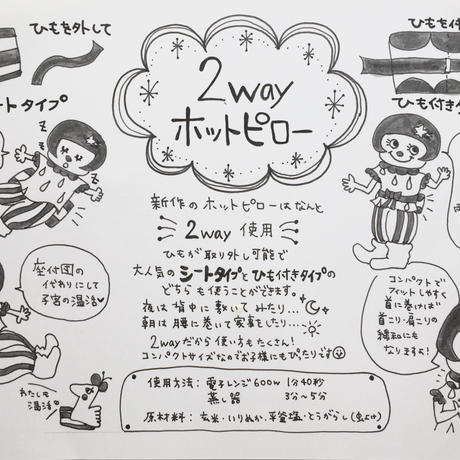 ひもを外して
ひもを付
2way
ホットピロー
ートタイプ
ひも付きタ
Z
z
z
新作のホットピローはなんと
2way 使用
ひもが取り外し可能で
大人気のシートタイプとひも付きタイプの
どちらも使うことができます。
夜は背中に敷いてみたり…
朝は腰に巻いて家事をしたり…
2wayだから使い方もたくさん!
コンパクトサイズなのでお子様にもぴったりです
座付団の
代わりにして
子宮の温活
わたしも
温活
コンパクトで
フィットしやすく
首に巻けば
首こり・肩こりの
緩和にも
なりますよ!
使用方法:電子レンジ600w 1分40秒
蒸し器 3分~5分
原材料:玄米・いりぬか、平釜塩・とうがらし(虫よけ)